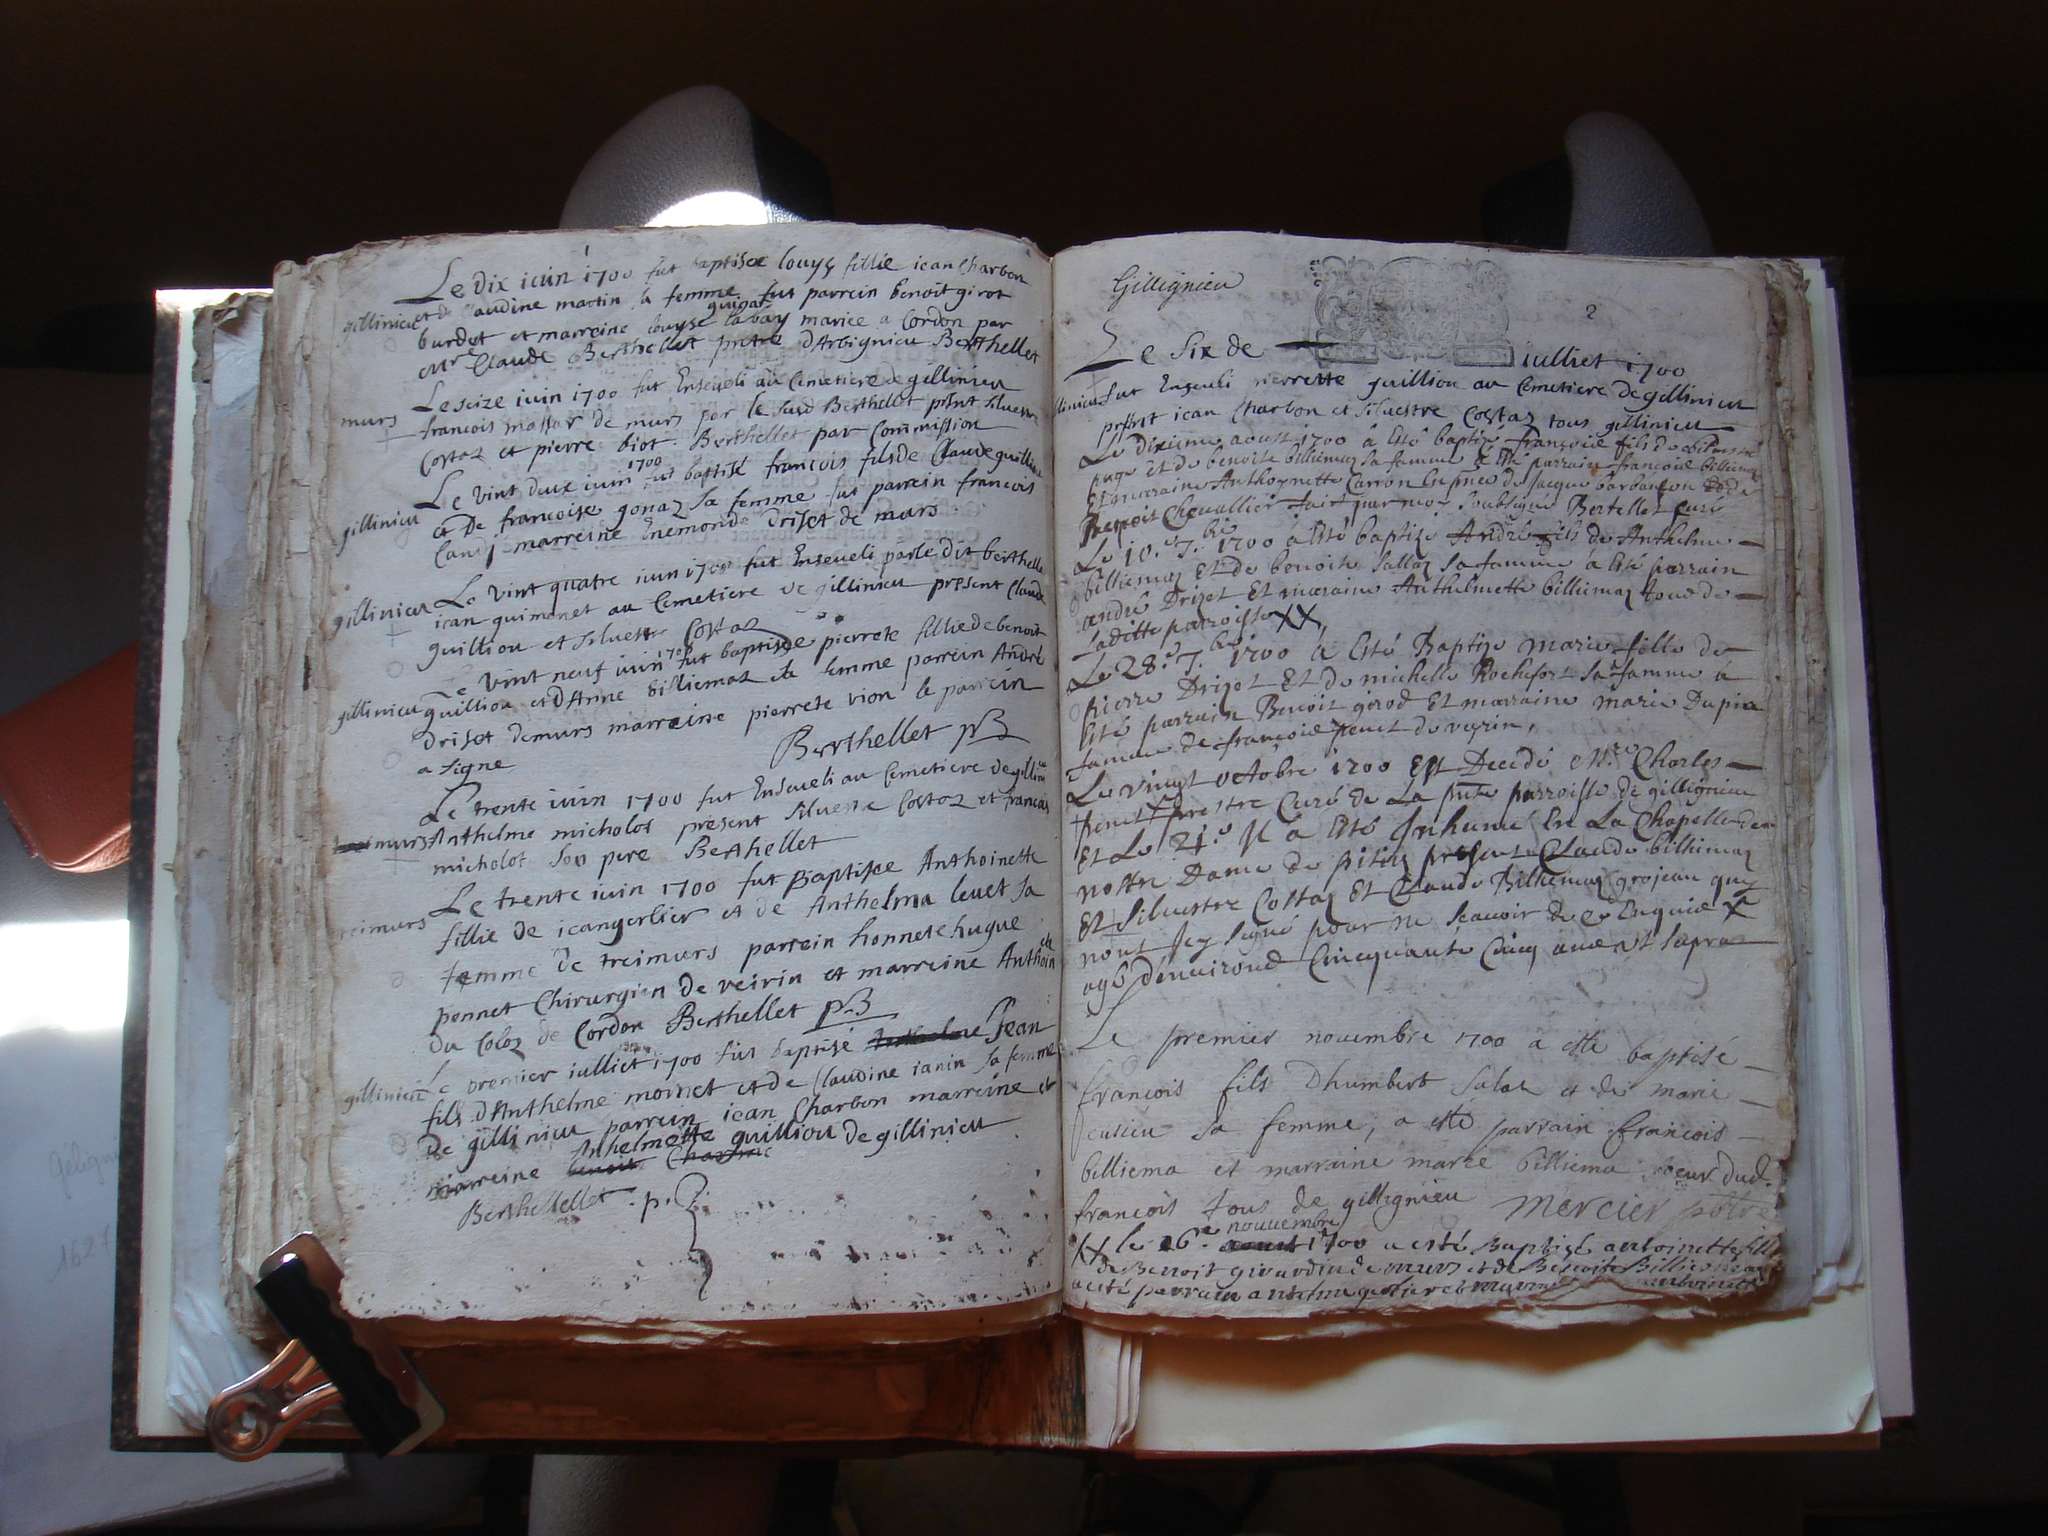 Le dix iuin 1700 fut baptisee louys fillie iean Charbon
gillinieu et de Claudine martin sa femme fut parrein benoit girot
burdet et marreine louyse guigar labay mariee a Cordon par
mre Claude Berthellet pretre dArbignieu Berthellet
murs Le seize iuin 1700 fut Enseueli au Cemetiere de gillinieu
francois de murs par le susd Berthellet present siluestre
Costaz et pierre biot Berthellet par Commission
gillinieu Le vint deux iuin 1700 fut baptisé francois fils de Claude guillion
et De francoise gonaz sa femme fut parrein francois
marreine Enemonde Driset de murs
gillinieu Le vint quatre iuin 1700 fut Enseueli par le dit berthellet
iean guimonet au Cemetiere de gillinieu present Claude
guilliou et siluestre Costaz
gillinieu Le vint neuf iuin 1700 fut baptisee pierrete fillie de benoit
guilliou et dAnne billiemaz sa femme parrein André
driset demurs marreine pierrete vion le parrein
a signe Berthellet
Le trente iuin 1700 fut Enseueli au Cemetiere de gillinieu
murs Anthelme micholot present siluestre Costaz et francois
micholot son pere Berthellet
Le trente iuin 1700 fut Baptisee Anthoinette
reimurs fillie de iean gerlier et de Anthelma leuet sa
femme de treimurs parrein honnete hugue
ponnet Chirurgien de veirin et marreine Anthoinete
du Coloz de Cordon Berthellet
gillinieu Le premier iulliet 1700 fut baptisé Jean
fils dAnthelme moinet et de Claudine ianin sa femme
De gillinieu parrein iean Charbon marreine et
marreine Anthelmette guilliou de gillinieu
Berthellet p.
Gillignieu
2
Le six de iulliet 1700
gillinieu fut Enseueli pierrette guilliou au Cemetiere de gillinieu
present iean Charbon et siluestre Costaz tous gillinieu
Le dixieme aoust 1700 â esté baptize françois fils de
puge et de benoite billiemaz sa famme â esté parrain françois billiemaz
Et marraine Anthoynette Carron de Jacque barbançon
Benoit Cheuallier fait par moy soubsigné Bertellet curé
Le 10.e 7.bre 1700 â esté baptize André fils de Anthelme
billiemaz Et de benoite sallaz sa famme â esté parrain
andré Drizet Et maraine Anthelmette billiemaz tous de
La ditte parroisse XX
Le 28.e 7.bre 1700 â esté Baptize marie fille de
pierre Drizet Et de michelle Rochefort sa famme â
esté parrain Benoit girod Et marraine marie Dupin
famme de françois penet de veyrin,
Le vingt octobre 1700 Est Decedé Mre Charles
penet prestre Curé de La pnte parroisse de gillignieu
Et Le 21.e Jl â esté Jnhumé En La Chapelle de
nostre Dame de pitiez present Claude billiemaz
Et siluestre Costaz Et Claude Billiemaz grojean qui
nont sey signé pour ne scauoir de ce Enquis
agé denuirond Cincquante Cincq ans
Le premier novembre 1700 a esté baptisé
francois fils Dhumbert salaz et de marie
sa femme, a esté parrain francois
billiema et marraine marie billiema soeur dud.
francois tous de gillignieu Mercier pbtre
XX le 26.e nouuembre 1700 a esté Baptisé antoinette fille
de Benoit girardin de murs et de Benoite Billiemaz
a esté parrain antelme gerlier et marraine antoinette